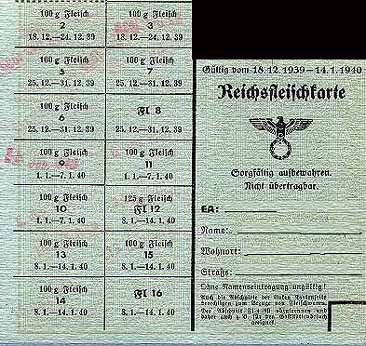 100 g Fleisch
2
18. 12.—24. 12. 39
100 g Fleisch
3
18. 12.—24. 12. 39
100 g Fleisch
5
25. 12.—31. 12. 39
100 g Fleisch
7
25. 12.—31. 12. 39
100 g Fleisch
6
25. 12.—31. 12. 39
Fl 8
25. 12.—31. 12. 39
100 g Fleisch
9
1. 1.—7. 1. 40
100 g Fleisch
11
1. 1.—7. 1. 40
100 g Fleisch
10
1. 1.—7. 1. 40
125 g Fleisch
Fl 12
8. 1.—14. 1. 40
100 g Fleisch
13
8. 1.—14. 1. 40
100 g Fleisch
15
8. 1.—14. 1. 40
100 g Fleisch
14
8. 1.—14. 1. 40
Fl 16
8. 1.—14. 1. 40
Gültig vom 18. 12. 1939—14. 1. 1940
Reichsfleischkarte
Sorgfältig aufbewahren.
Nicht übertragbar.
EA:
Name:
Wohnort:
Straße:
Ohne Namenseintragung ungültig!
Auch die Abschnitte der linken Kartenseite
berechtigen zum Bezuge von Fleischwaren.
Der Abschnitt Fl 4 ist
daher auch z. B. für den Gaststättenbesuch
geeignet.